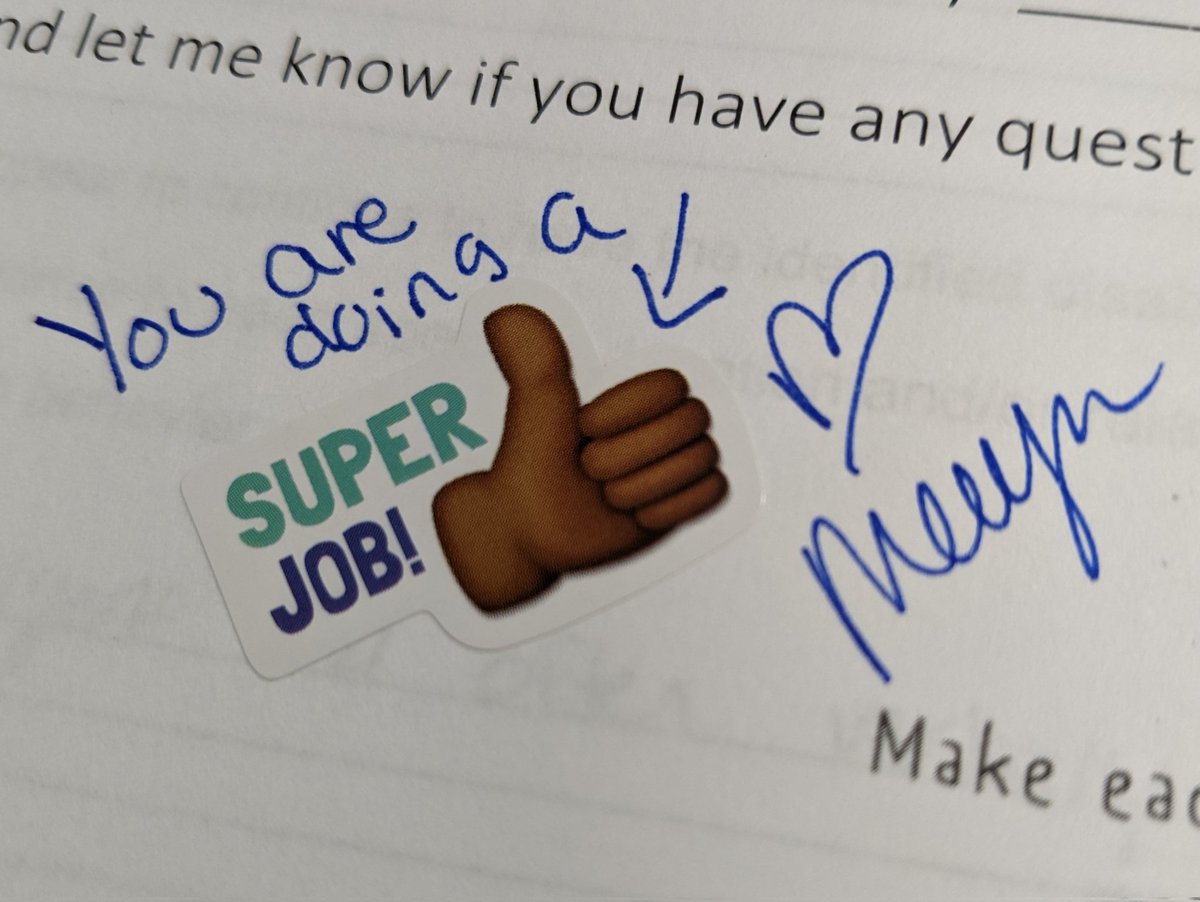 nd let me know if you have any quest
You are
doing a
SUPER
JOB!
Make eac